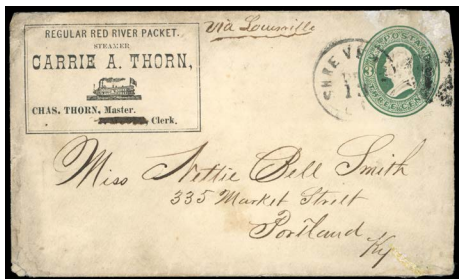 REGULAR RED RIVER PACKET.
STEAMER
CARRIE A. THORN,
CHAS. THORN, Master.
Clerk.
Via Louisville
SHREVE
POSTAGE
THREE CENTS
Miss Nettie Bell Smith
335 Market Street
Portland
Ky